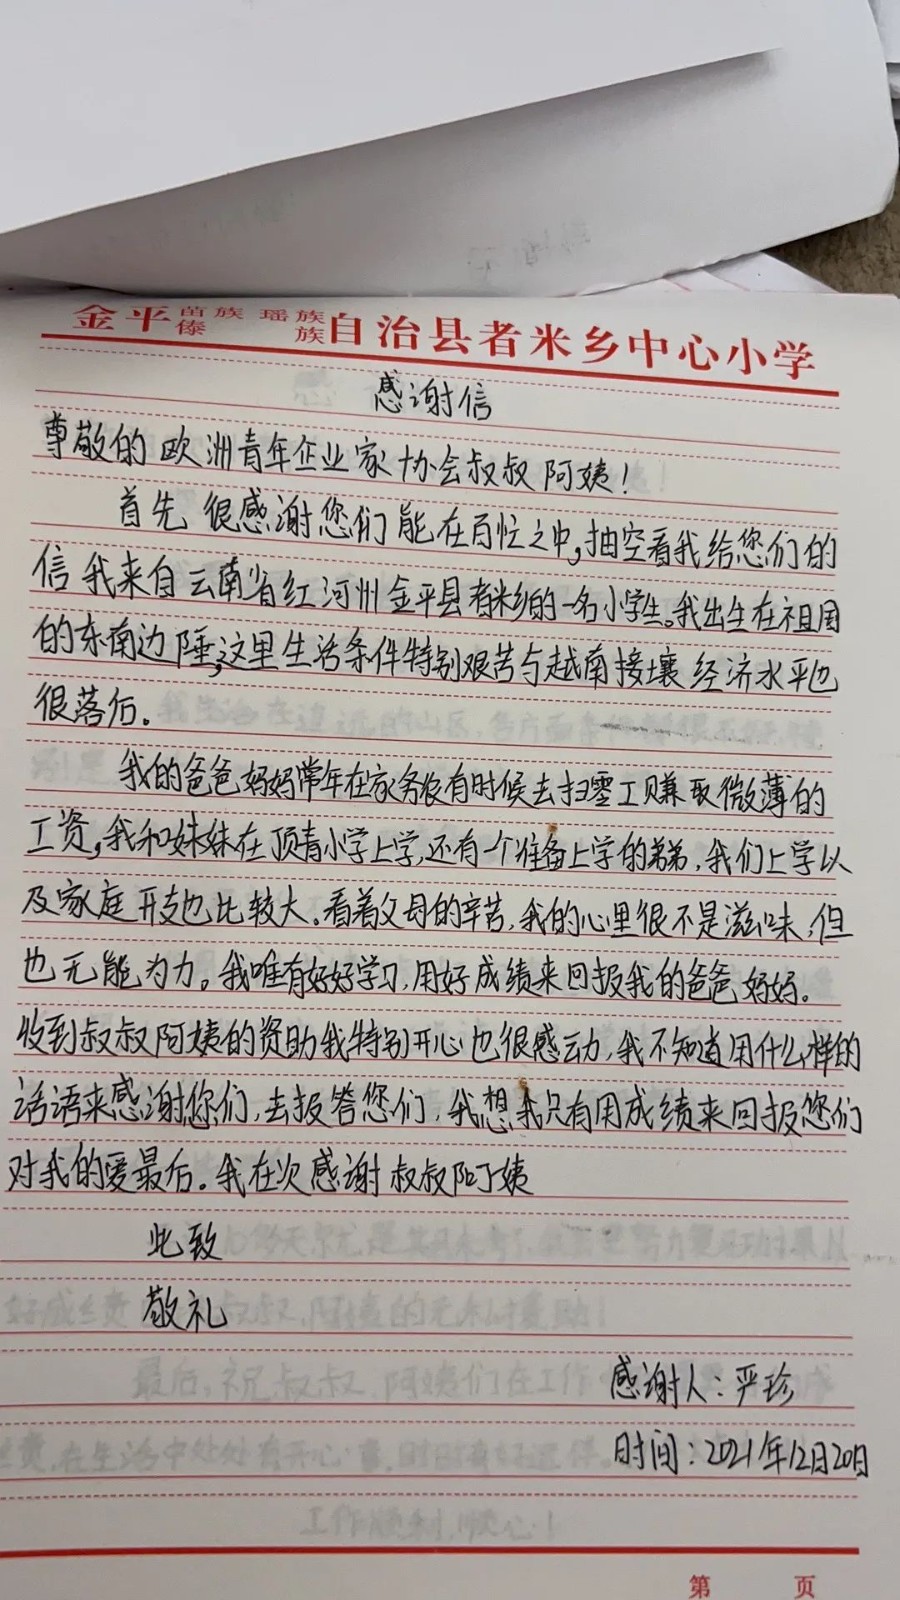 金平苗族瑶族傣族自治县者米乡中心小学
感谢信
尊敬的欧洲青年企业家协会叔叔阿姨！
首先很感谢您们能在百忙之中,抽空看我给您们的
信我来自云南省红河州金平县者米乡的一名小学生。我出生在祖国
的东南边陲,这里生活条件特别艰苦与越南接壤经济水平也
很落后。
我的爸爸妈妈常年在家务农有时候去扫零工赚取微薄的
工资,我和妹妹在顶青小学上学,还有一个准备上学的弟弟,我们上学以
及家庭开支也比较大。看着父母的辛苦,我的心里很不是滋味,但
也无能为力。我唯有好好学习,用好成绩来回报我的爸爸妈妈。
收到叔叔阿姨的资助我特别开心也很感动,我不知道用什么样的
话语来感谢您们,去报答您们,我想我只有用成绩来回报您们
对我的爱最后。我在次感谢叔叔阿姨
此致
敬礼
感谢人:严珍
时间:2021年12月20日
第 页